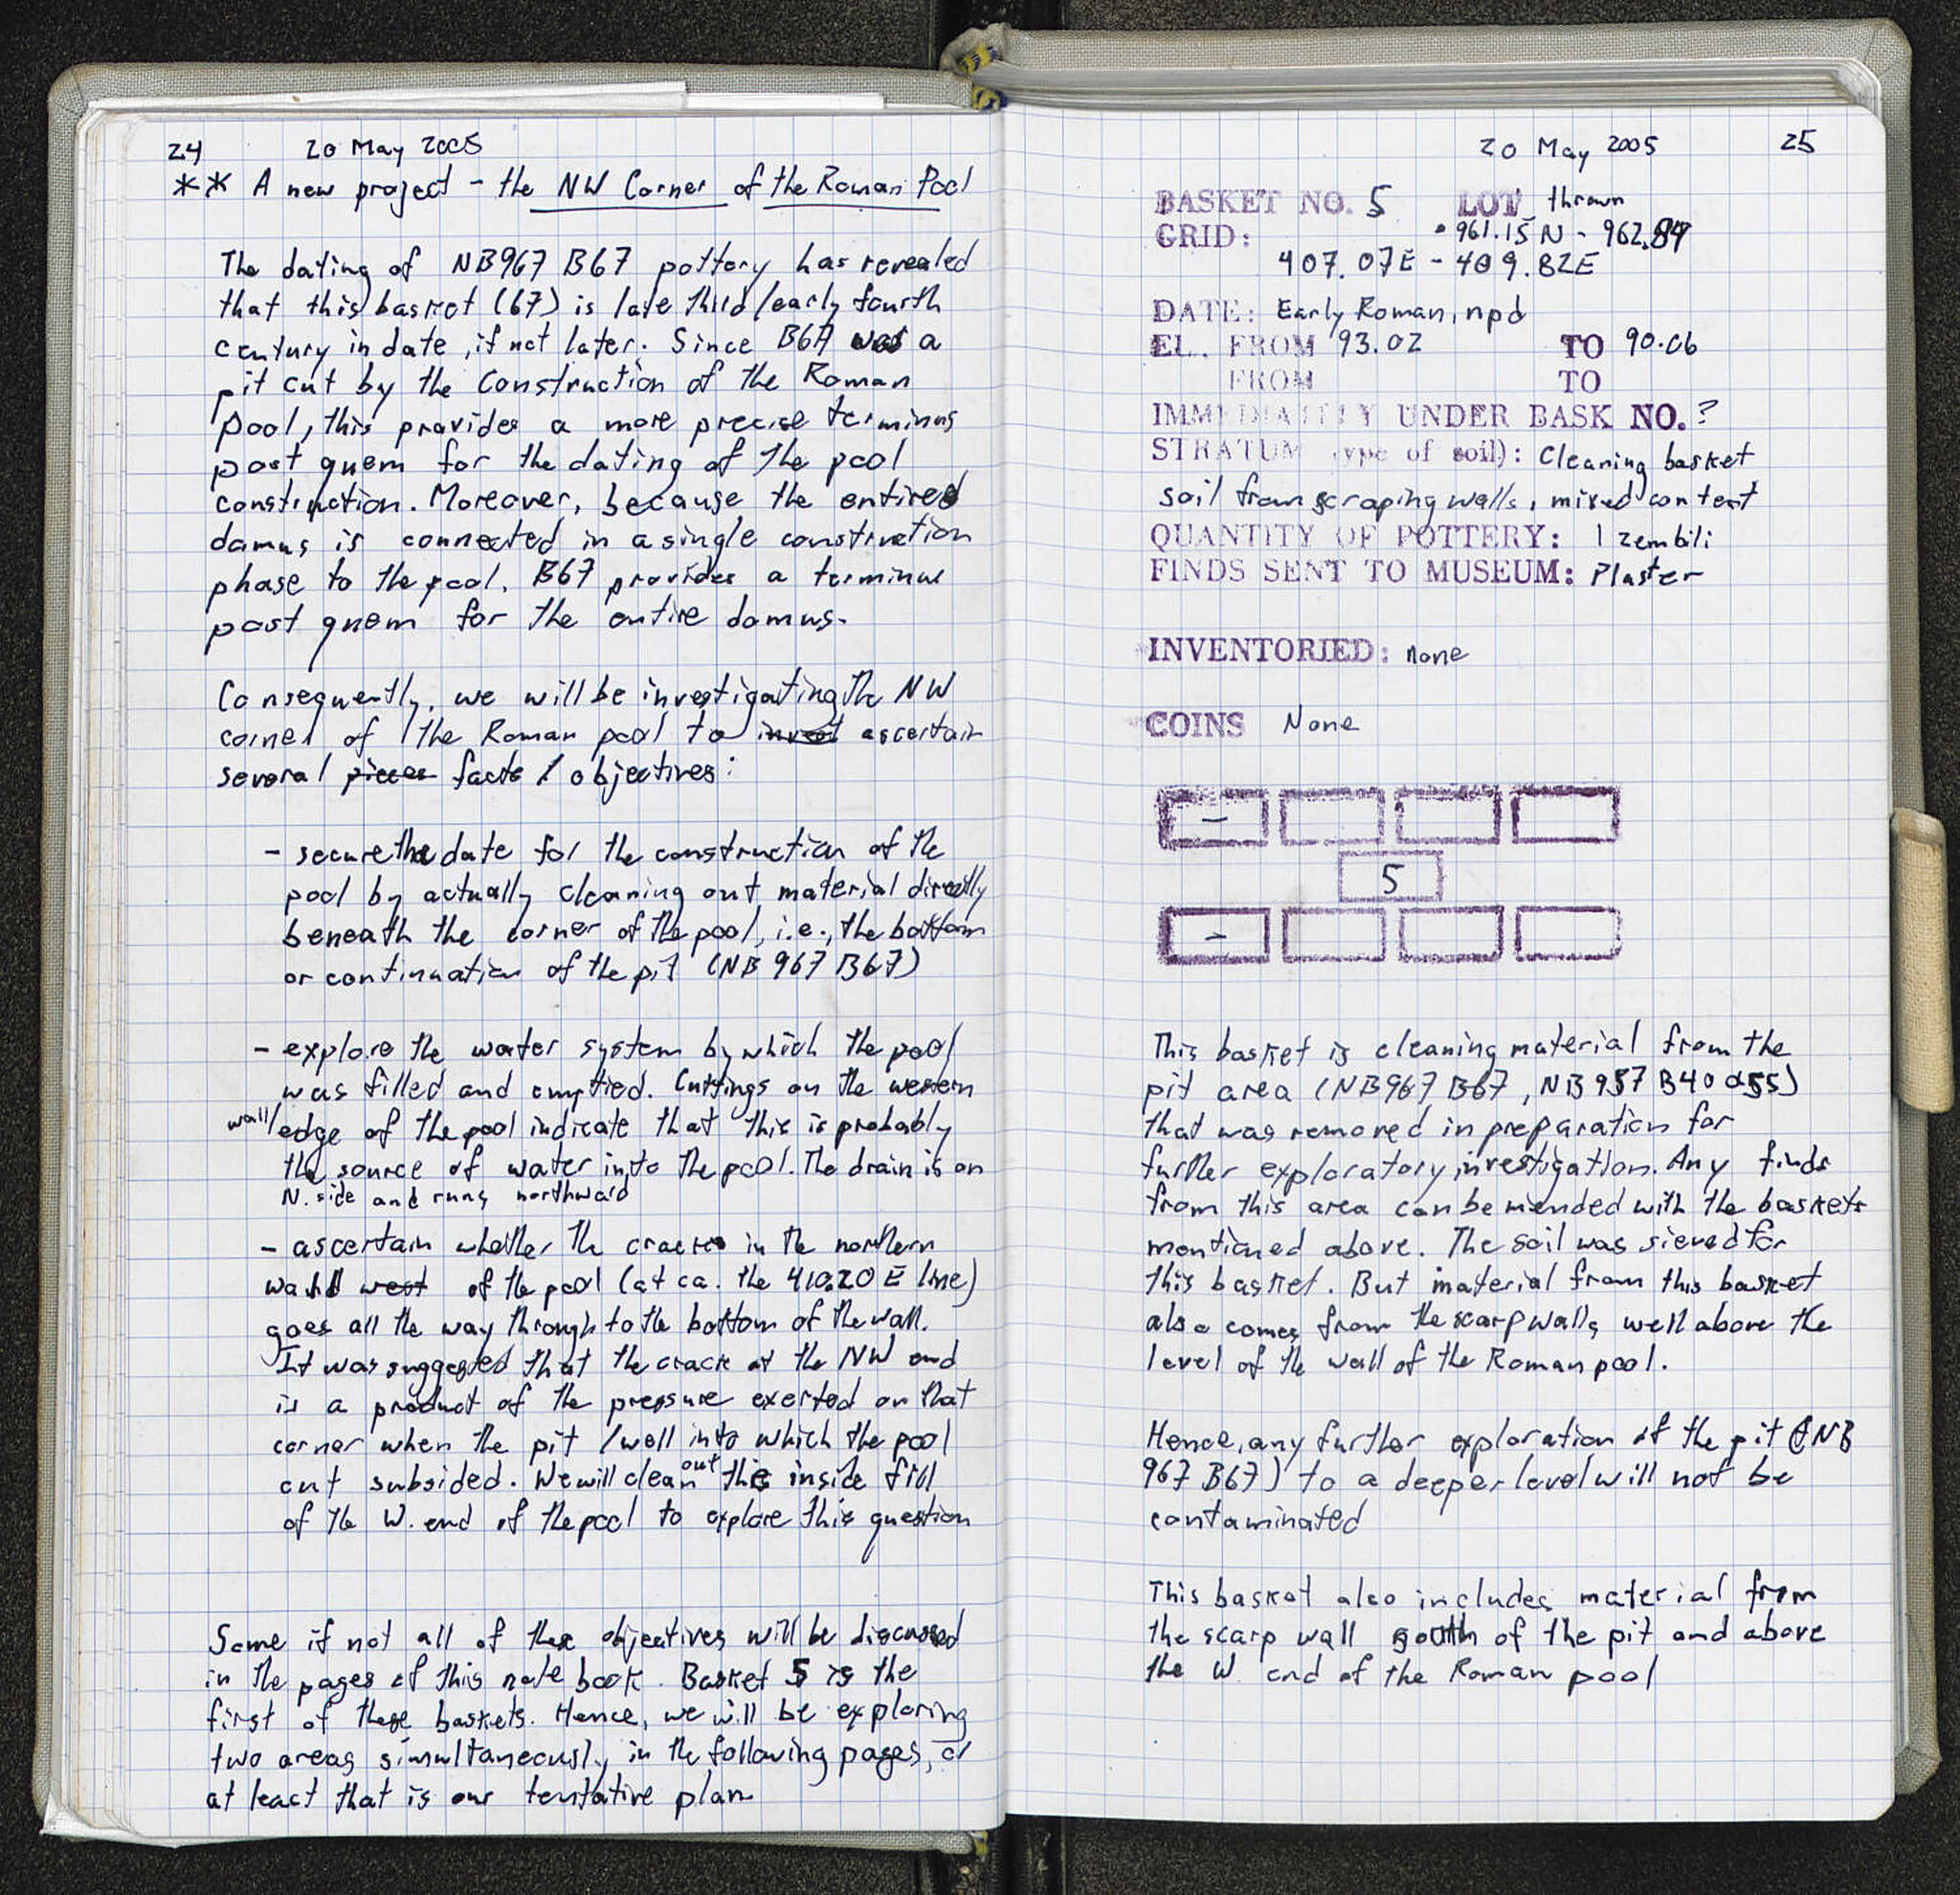 24 20 May 2005
** A new project - the NW Corner of the Roman Pool
The dating of NB967 B67 pottery has revealed
that this basket (67) is late third/early fourth
century in date, if not later. Since B67 was a
pit cut by the construction of the Roman
pool, this provides a more precise terminus
post quem for the dating of the pool
construction. Moreover, because the entire
domus is connected in a single construction
phase to the pool, B67 provides a terminus
post quem for the entire domus.
Consequently, we will be investigating the NW
corner of the Roman pool to invest ascertain
several pieces facts / objectives:
- secure the date for the construction of the
pool by actually cleaning out material directly
beneath the corner of the pool, i.e., the bottom
or continuation of the pit (NB 967 B67)
- explore the water system by which the pool
was filled and emptied. Cuttings on the western
wall/edge of the pool indicate that this is probably
the source of water into the pool. The drain is on
N. side and runs northward
- ascertain whether the crack in the northern
wall west of the pool (at ca. the 410.20 E line)
goes all the way through to the bottom of the wall.
It was suggested that the crack at the NW end
is a product of the pressure exerted on that
corner when the pit /well into which the pool
cut subsided. We will clean out the inside fill
of the W. end of the pool to explore this question
Some if not all of these objectives will be discussed
in the pages of this note book. Basket 5 is the
first of these baskets. Hence, we will be exploring
two areas simultaneously in the following pages, or
at least that is our tentative plan
20 May 2005 25
BASKET NO. 5 LOT thrown
GRID: 961.15 N - 962.84
407.07E - 409.82E
DATE: Early Roman, npd
EL. FROM 93.02 TO 90.06
FROM TO
IMMEDIATELY UNDER BASK NO. ?
STRATUM (type of soil): Cleaning basket
soil from scraping walls, mixed context
QUANTITY OF POTTERY: 1 zembili
FINDS SENT TO MUSEUM: Plaster
INVENTORIED: none
COINS None
-
5
-
This basket is cleaning material from the
pit area (NB967 B67, NB957 B40 & 55)
that was removed in preparation for
further exploratory investigation. Any finds
from this area can be mended with the baskets
mentioned above. The soil was sieved for
this basket. But material from this basket
also comes from the scarp walls well above the
level of the wall of the Roman pool.
Hence, any further exploration of the pit (NB
967 B67) to a deeper level will not be
contaminated
This basket also includes material from
the scarp wall south of the pit and above
the W. end of the Roman pool